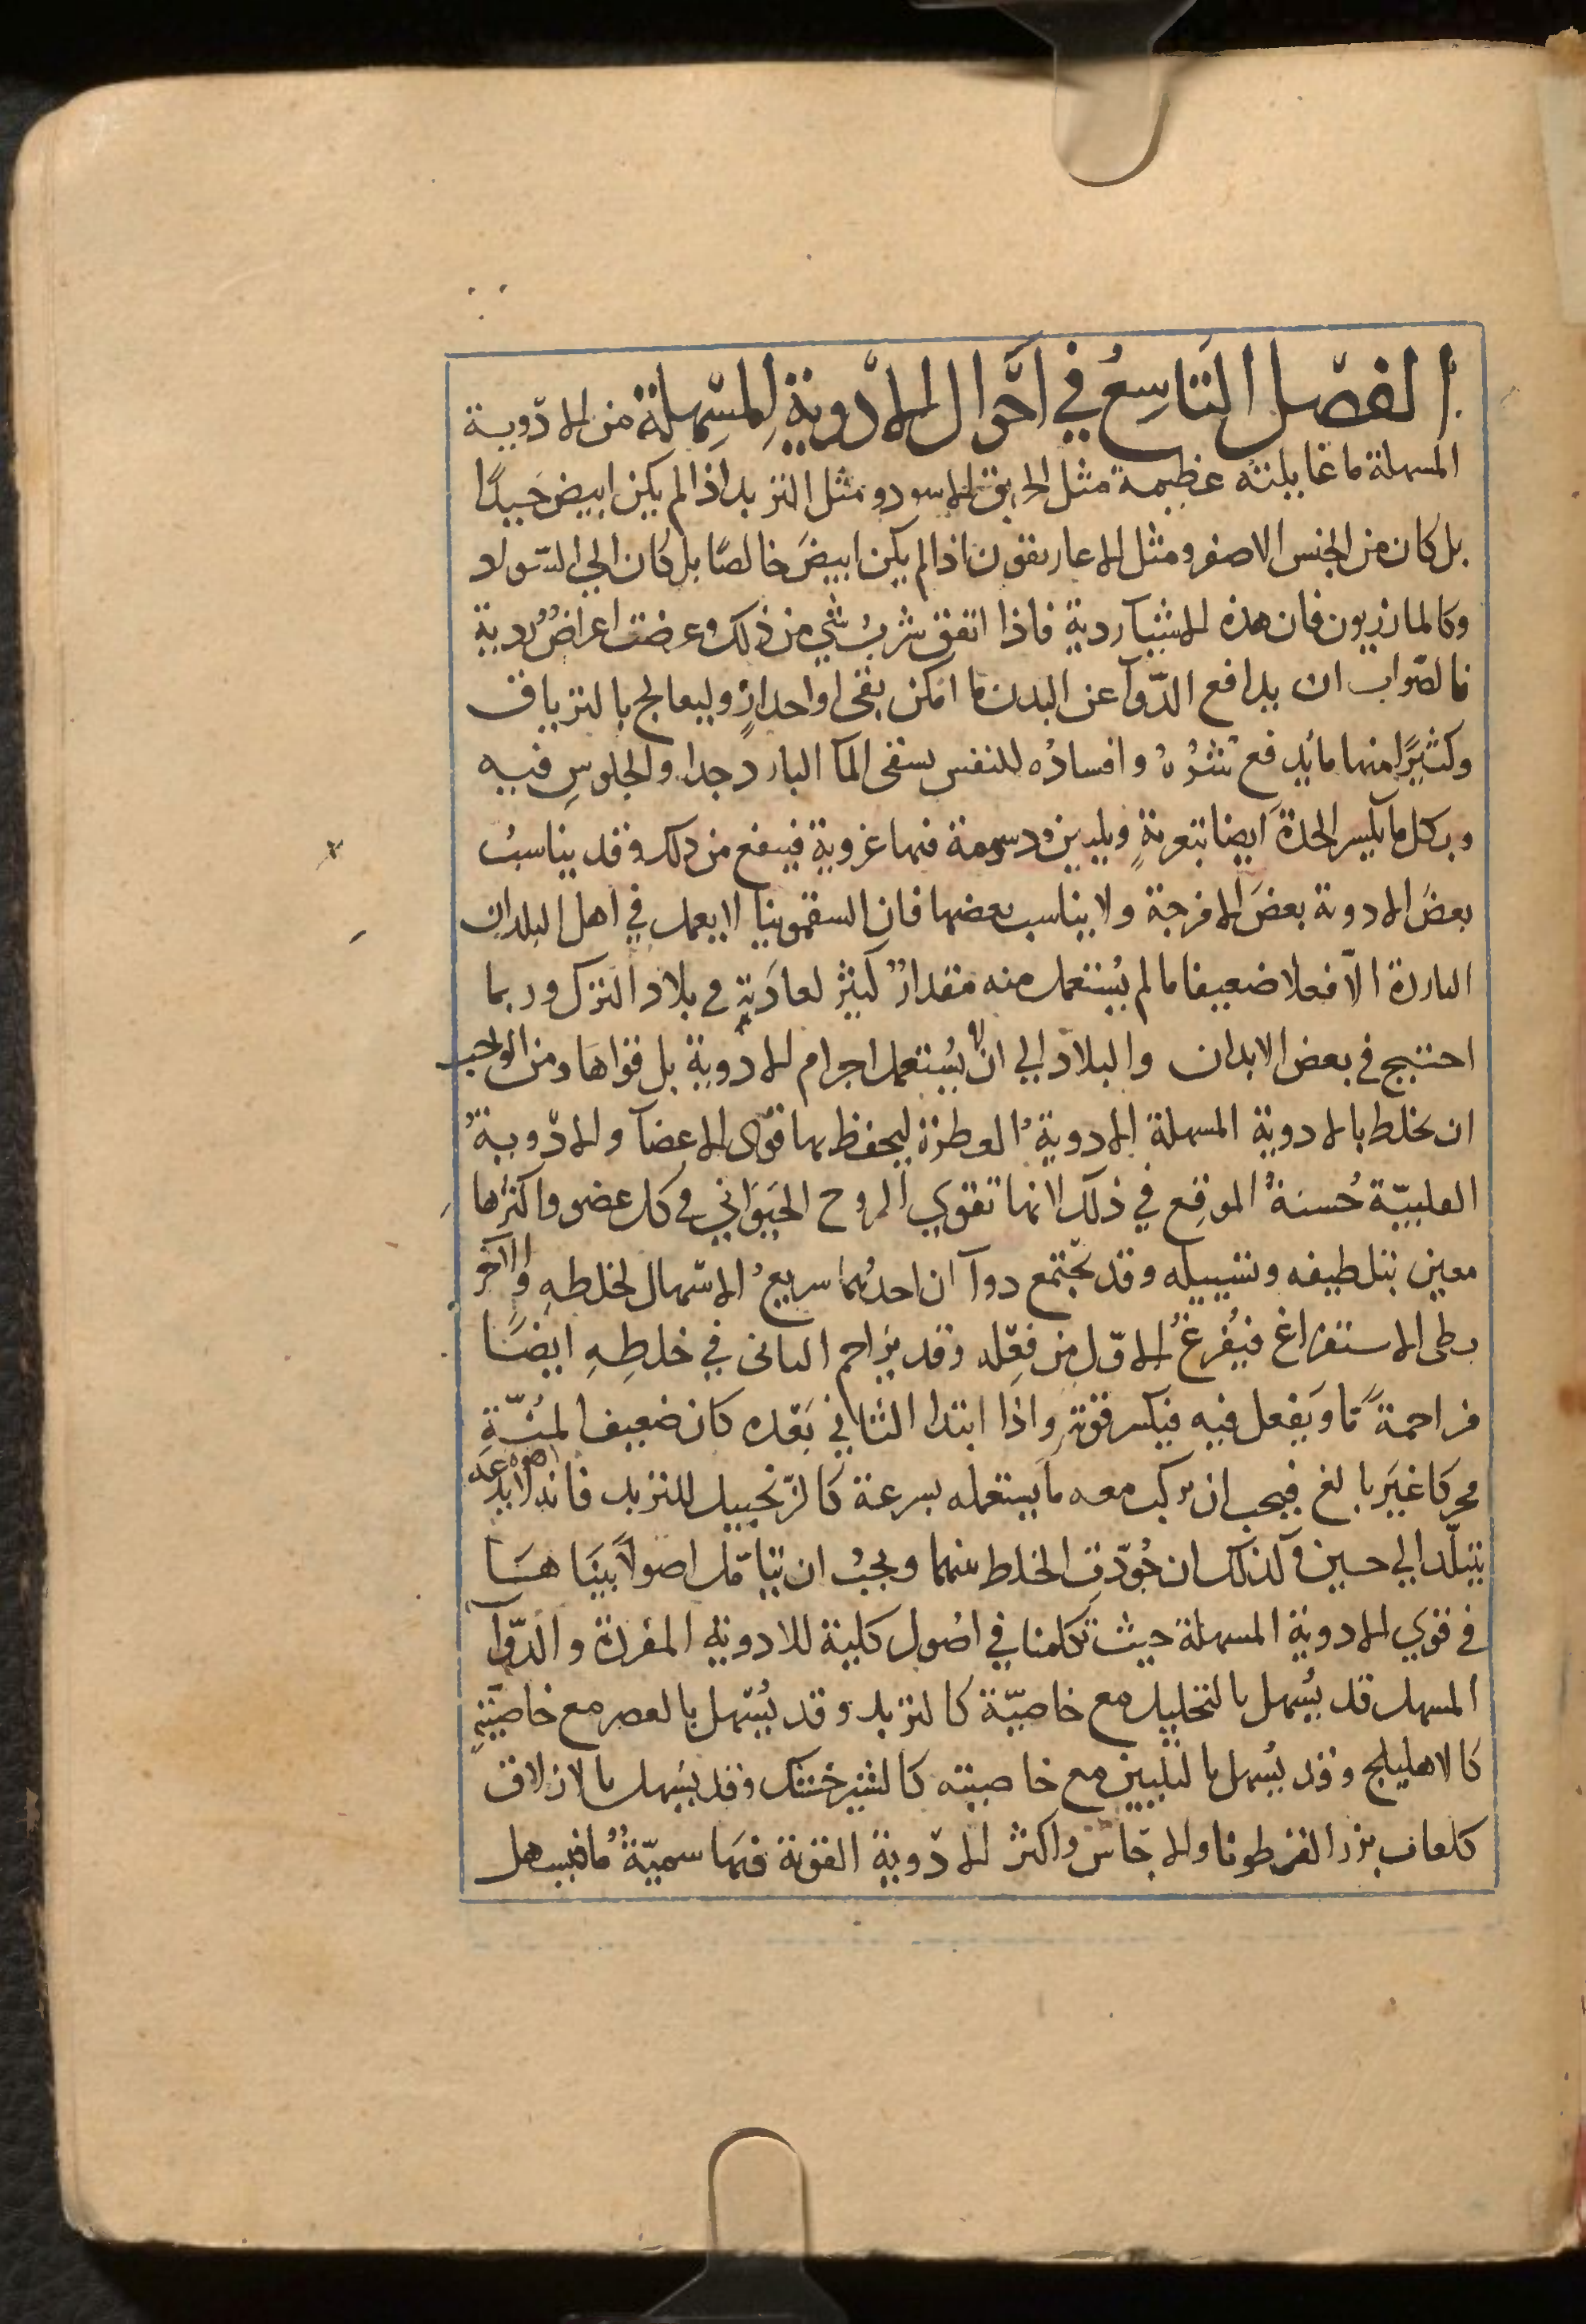 الفصل التاسع في احوال الادوية المسهلة من الادوية
المسهلة ما غايلته عظيمة مثل الخربق الاسود ومثل التربد اذا لم يكن ابيض جيدًا
بل كان من الجنس الاصفر ومثل الاغاريقون اذا لم يكن ابيض خالصًا بل كان الي السواد
وكالمازريون فان هذه الاشيآ ردية فاذا اتفق شرب شي من ذلك وعرضت اعراضٌ ردية
فالصواب ان يدافع الدوآ عن البدن ما امكن بقى او احدارٍ وليعالج بالترياق
وكثيرًا منها ما يدفع شره وافساده للنفس بسقى المآ البارد جدا والجلوس فيه
وبكل ما يكسر الحدة ايضا بتغرية وتليين ودسومة فيها غروية فينفع من ذلك وقد يناسب
بعض الادوية بعض الامزجة ولا يناسب بعضها فان السقمونيا لا يعمل في اهل البلدان
الباردة الا فعلا ضعيفا ما لم يُستعمل منه مقدارٌ كثير لعادته في بلاد الترك وربما
احتيج في بعض الابدان والبلاد الي ان لا يستعمل اجرام الادوية بل قواها ومن الواجب
ان يخلط بالادوية المسهلة الادوية العطرة ليحفظ بها قوى الاعضآ والادوية
القلبيّة حسنة الموقع في ذلك لانها تقوي الروح الحيواني في كل عضو واكثرها
معين بتلطيفه وتسييله وقد يجتمع دوآان احدهما سريع الاسهال لخلطه والآخر
بطى الاستفراغ فيفرغ الاول من فعله وقد يزاحم الثانى في خلطه ايضًا
مزاحمةً مّا ويفعل فيه فيكسر قوته واذا ابتدا الثاني بعده كان ضعيف المنّة
محركا غير بالغ فيجب ان يركب معه ما يستعمله بسرعة كالزنجبيل للتربد فانه لا يدعه
يتبلّد الي حين وكذلك ان جُوّدت الخلط بينهما ويجب ان تتامّل اصولاً بيناها
في قوي الادوية المسهلة حيث تكلمنا في اصول كلية للادوية المفردة والدوآ
المسهل قد يُسهل بالتحليل مع خاصيّة كالتربد وقد يُسهل بالعصر مع خاصيّته
كالاهليلج وقد يُسهل بالتليين مع خاصيته كالشيرخشك وقد يسهل بالازلاق
كلعاب بزر القطونا والاجاس واكثر الادوية القوية فيها سميّةٌ ما فيسهل